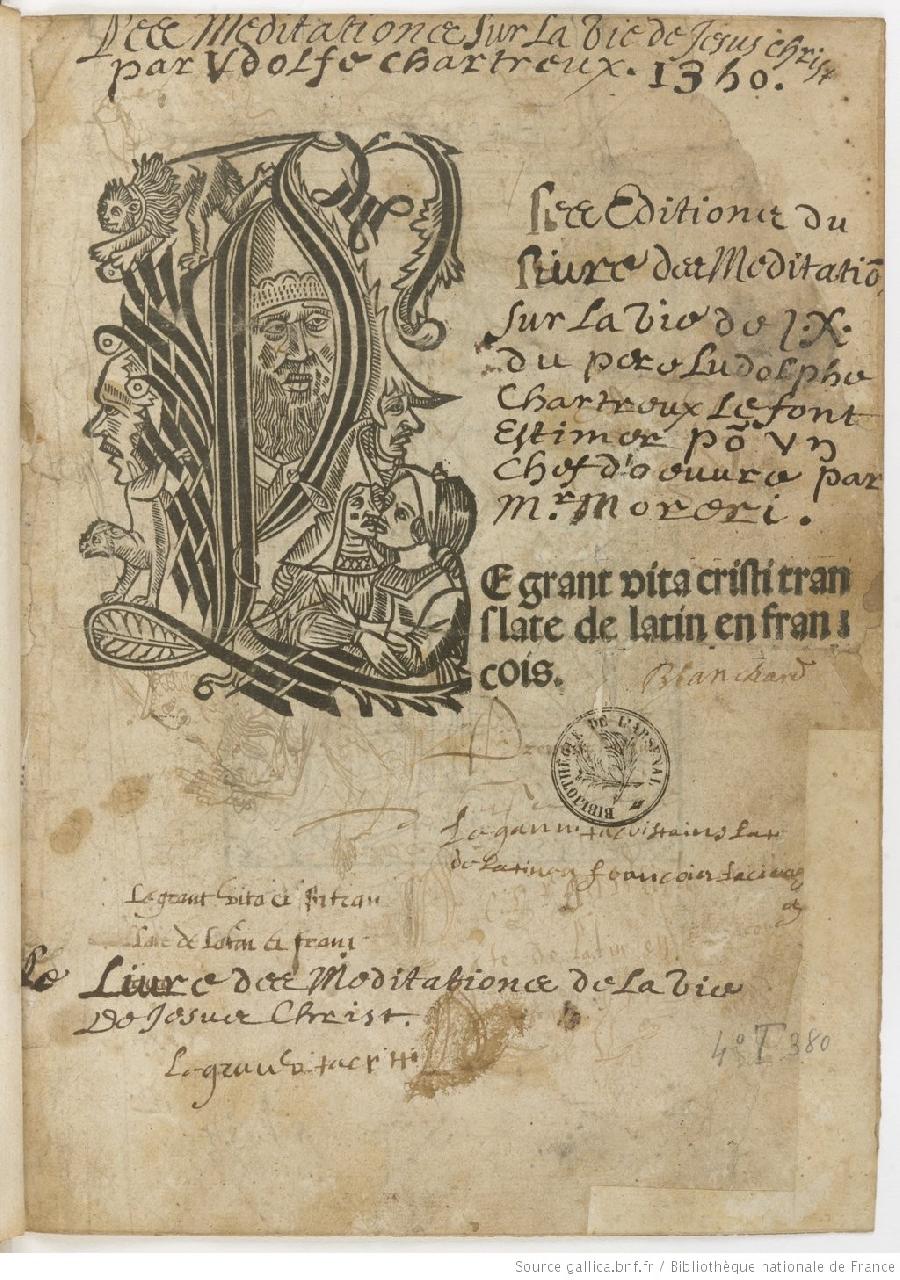 Des Meditations sur La Vie de Jesus christ
par Vdolfe chartreux. 1340.
Les Editions du
Liure des Meditatiõ
sur La Vie de J.X.
du pere Ludolphe
Chartreux Le font
Estimer põ Vn
Chef d'oeuure par
Mr. Moreri.
LE grant vita cristi tran
slate de latin en fran
cois.
Blanchard
BIBLIOTHÈQUE DE L'ARSENAL
de Latin en francois
Le grant vita cristi tran
slate de latin en franc
Le Liure des Meditations de La Vie
De Jesus Christ.
Le grant vita cristi
4° T 380
Source gallica.bnf.fr / Bibliothèque nationale de France